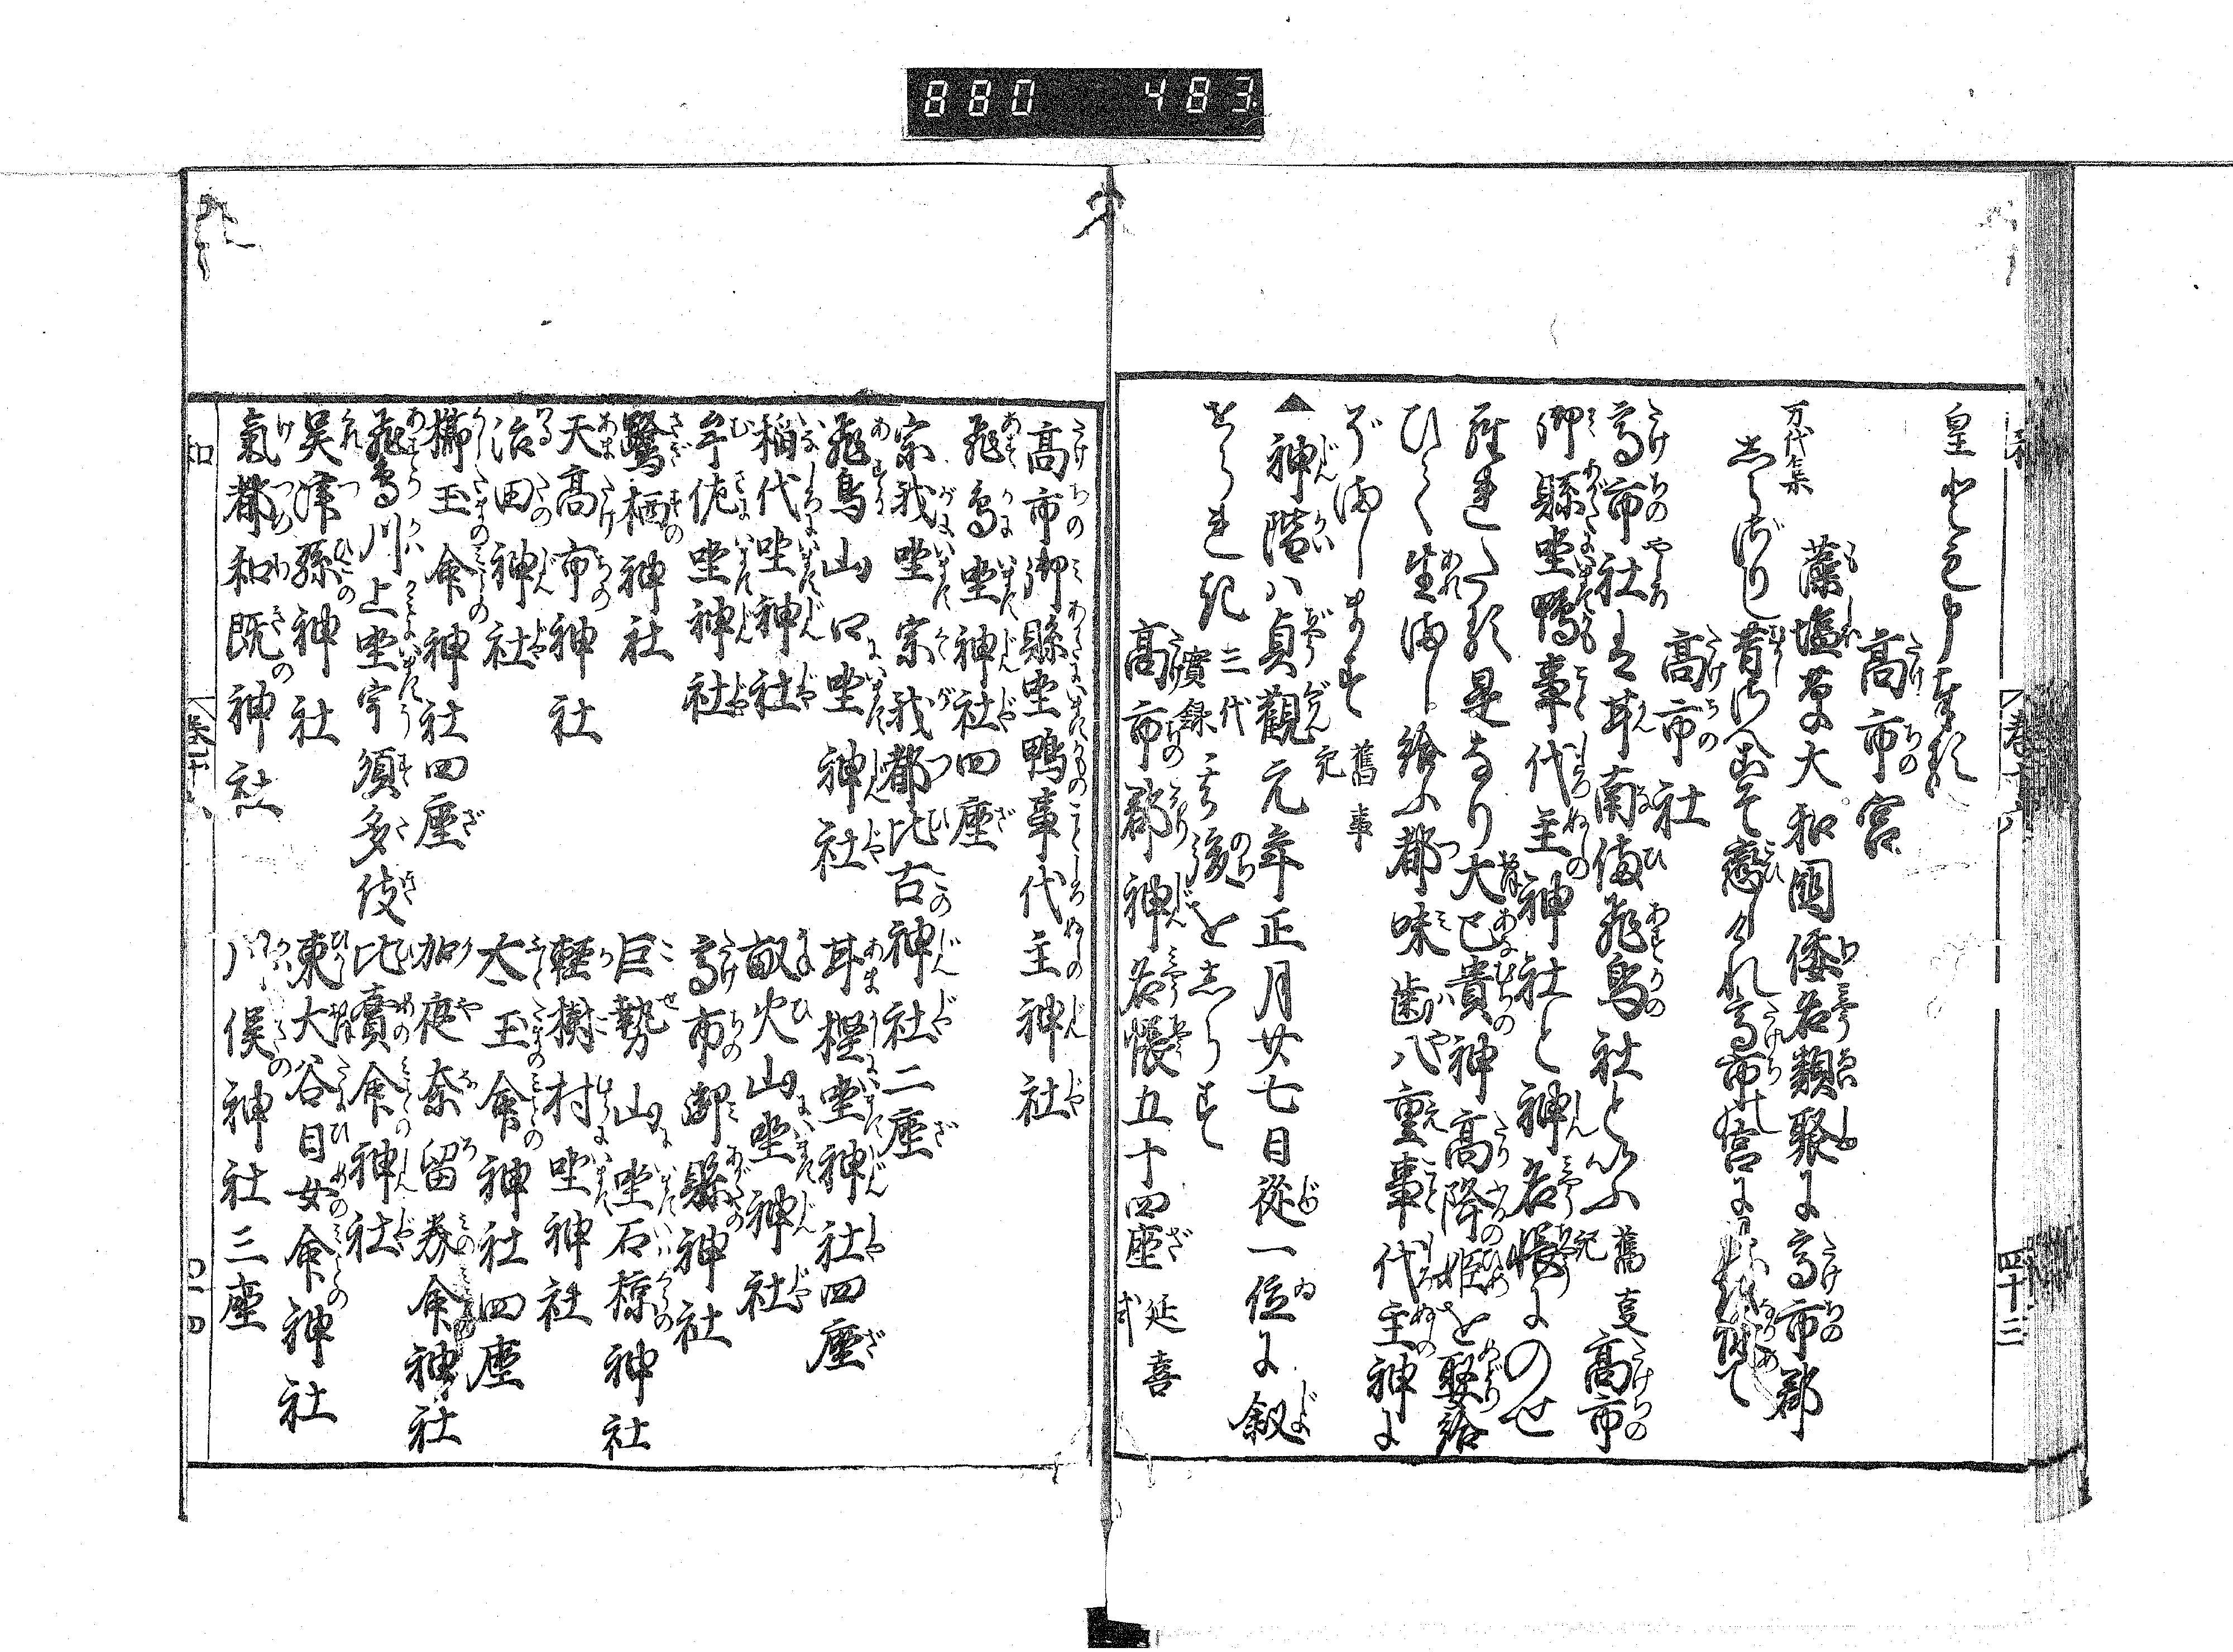 880 483
皇とも申奉る
高市宮
藻塩草大和国倭名類聚に高市郡
万代集
高市社
高市社は耳南備飛鳥社といふ舊事記高市
御縣坐鴨事代主神社と神名帳にのせ
られたる是なり大已貴神高降姫を娶給
ひて生ましし給ふ都味歯八重事代主神に
ぞましします舊事記
▲神階ハ貞觀元年正月廿七日從一位に叙
せられ給三代實録其後をしらず
高市郡神名帳五十四座延喜式
卷十六
四十三
高市御縣坐鴨事代主神社
飛鳥坐神社四座
宗我坐宗我都比古神社二座
飛鳥山口坐神社 耳樫坐神社四座
稲代坐神社 畝火山坐神社
牟佐坐神社 高市御縣神社
鷺栖神社 巨勢山坐石椋神社
天高市神社 軽樹村坐神社
治田神社 太玉命神社四座
櫛玉命神社四座 加夜奈留美命神社
飛鳥川上坐宇須多伎比賣命神社
呉津孫神社 東大谷日女命神社
氣都和既神社 川俣神社三座
和